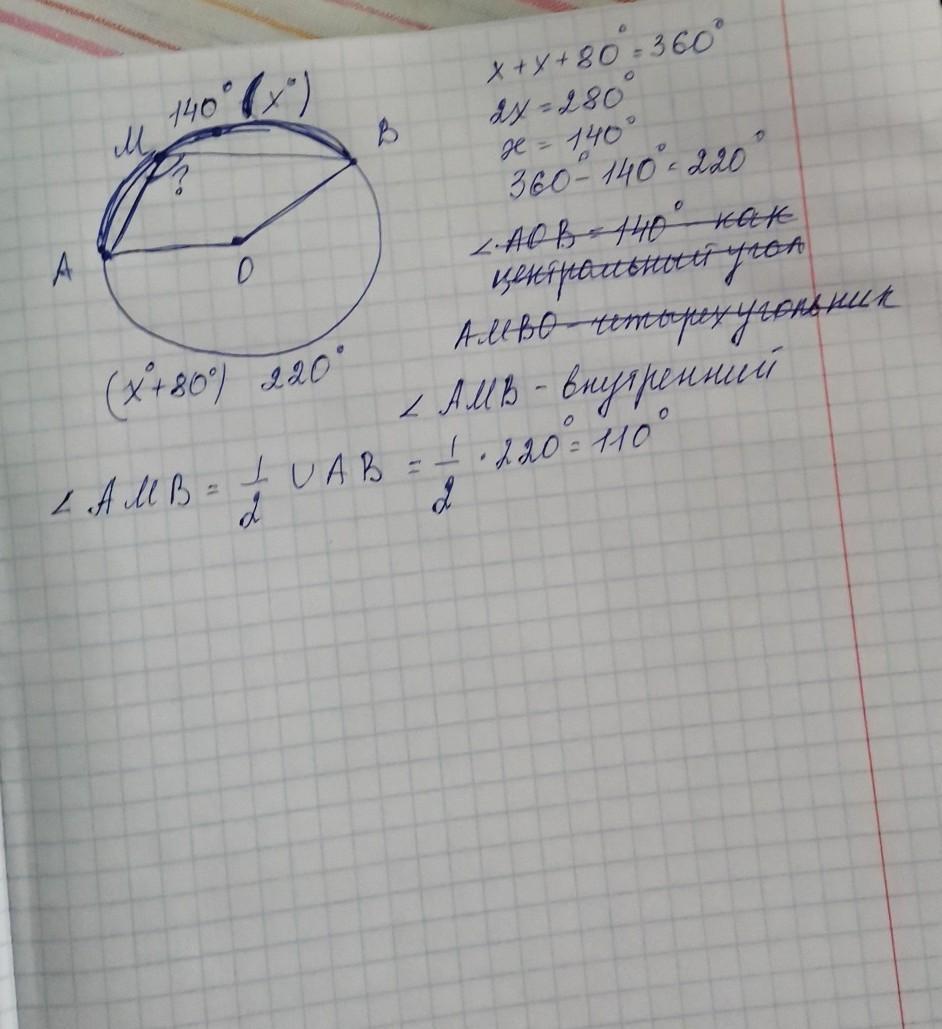 140° (x°)
M
B
?
A
O
(x°+80°) 220°
x+x+80°=360°
2x=280°
x=140°
360°-140°=220°
∠AOB=140° как
центральный угол
AMBO - четырехугольник
∠AMB - внутренний
∠AMB = 1/2 ∪AB = 1/2 · 220° = 110°